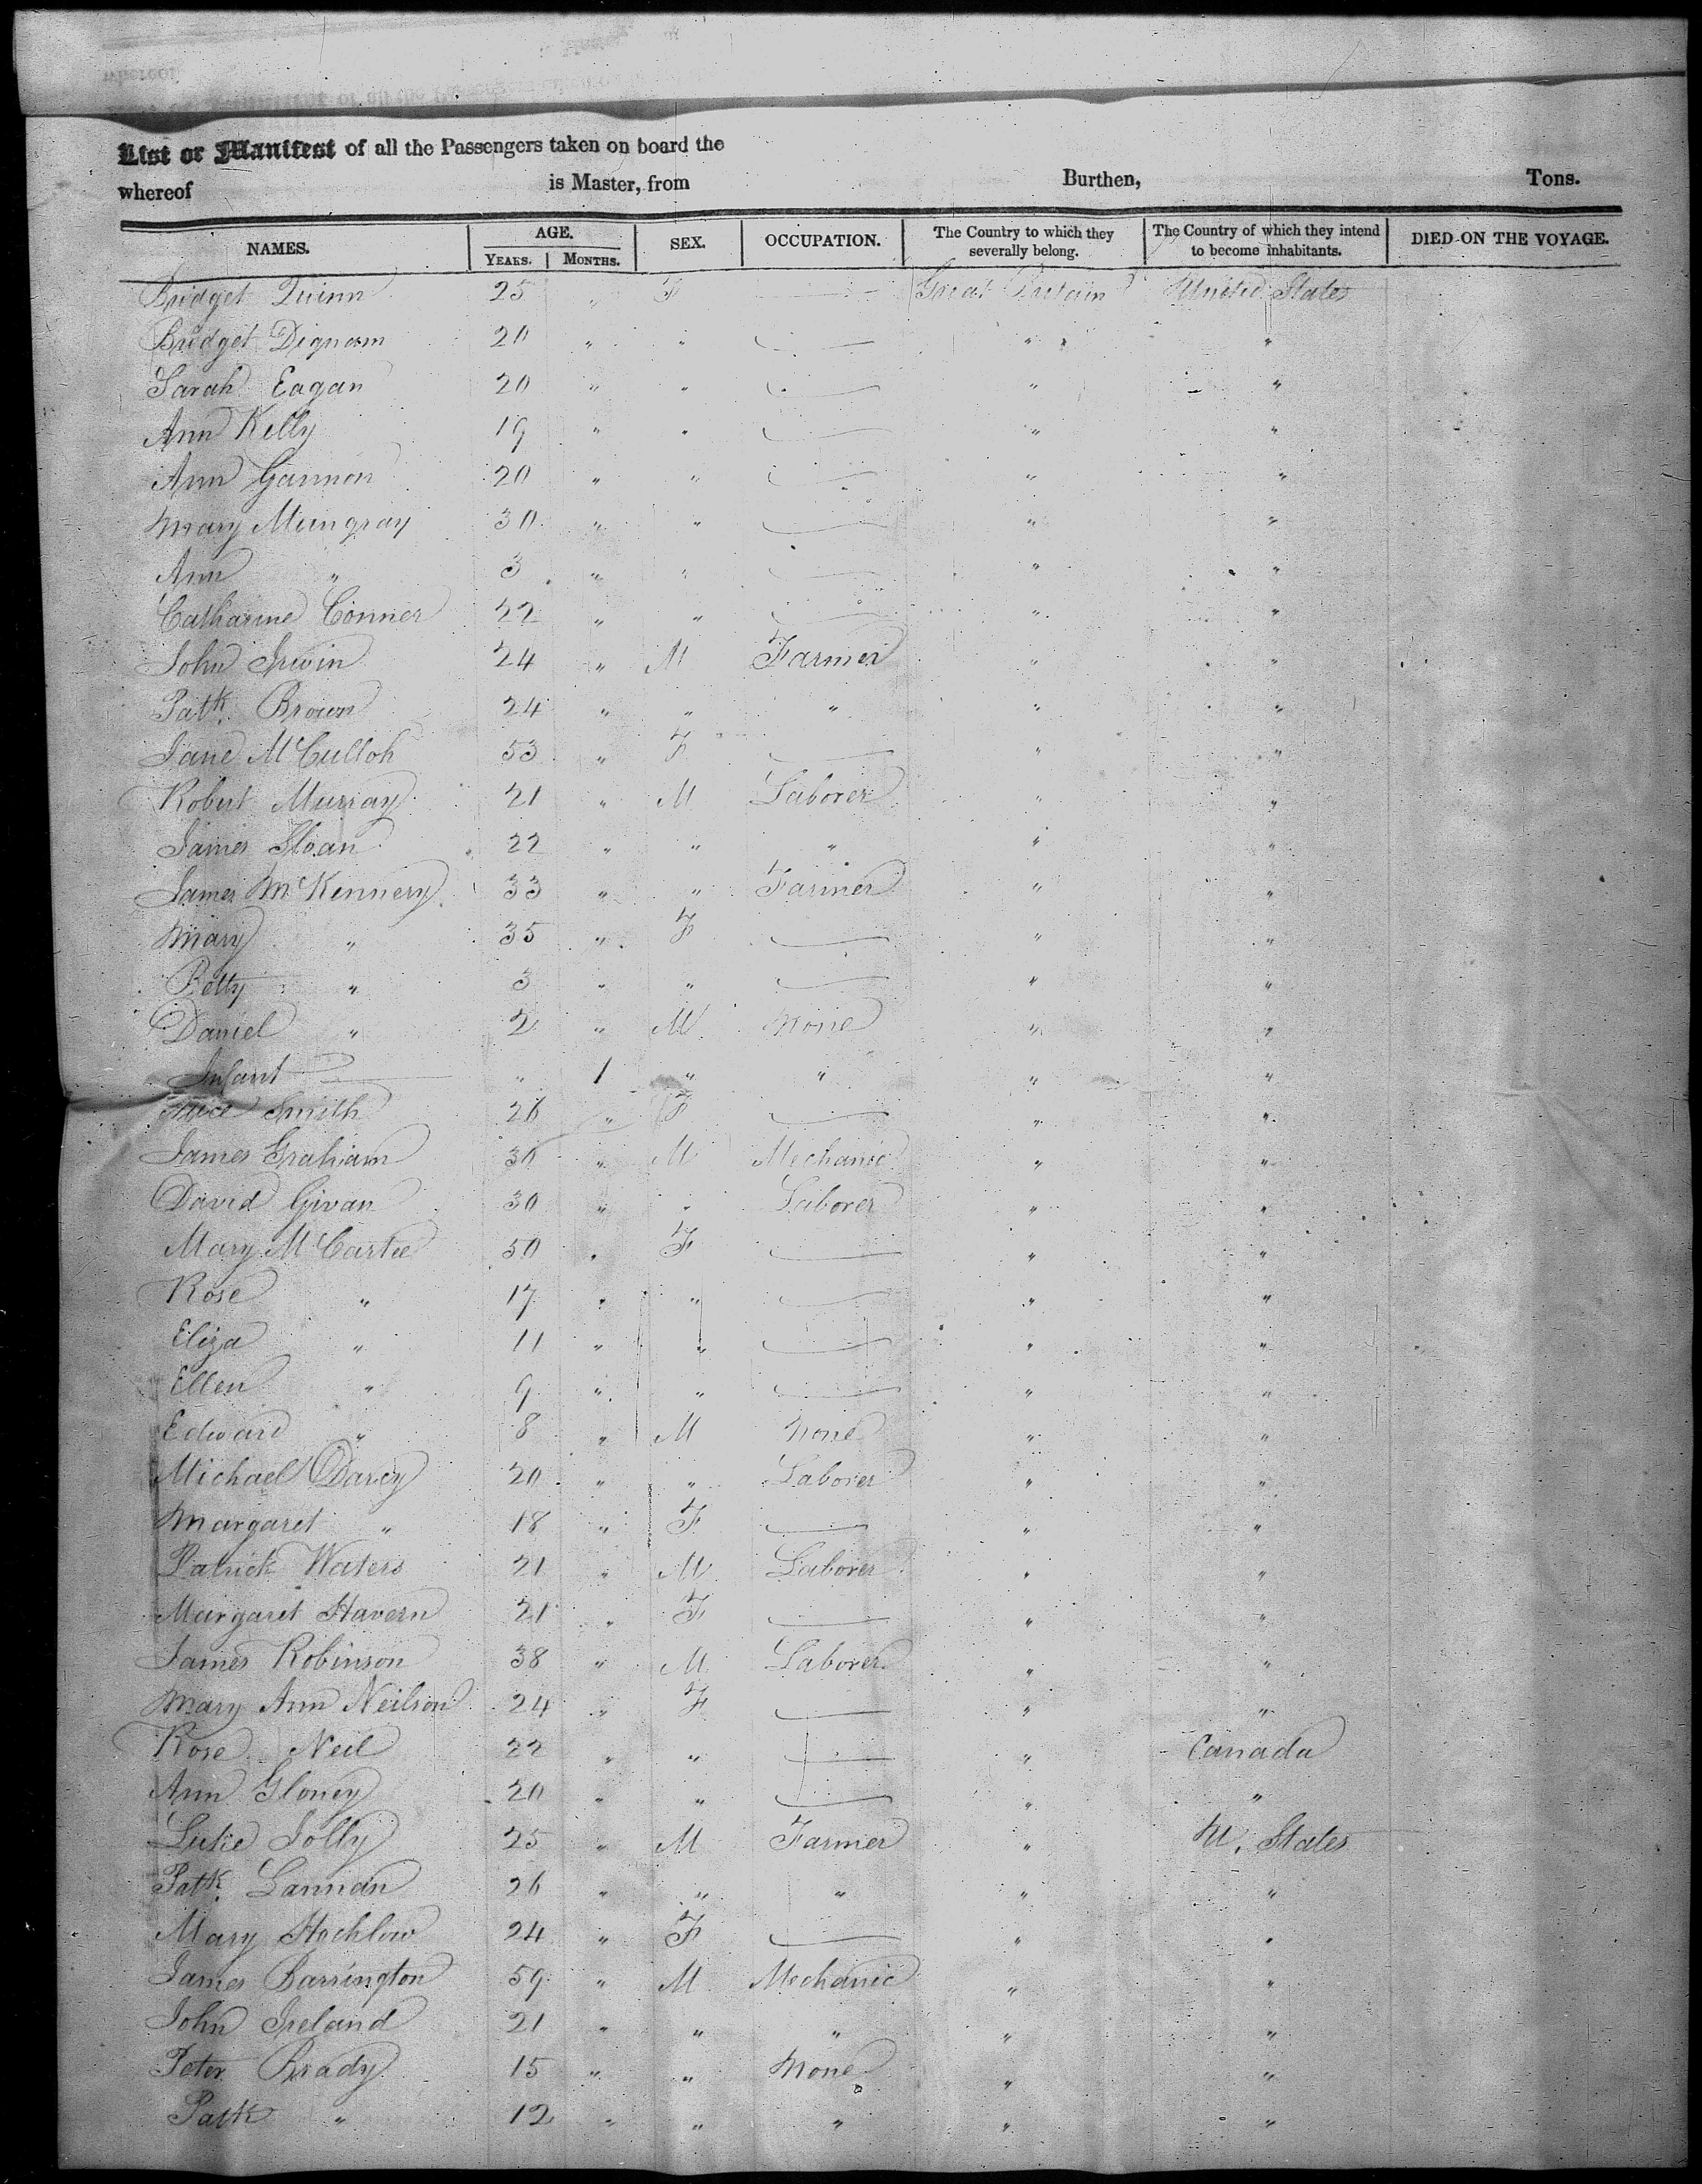 List or Manifest of all the Passengers taken on board the
whereof is Master, from Burthen, Tons.
NAMES. AGE. SEX. OCCUPATION. The Country to which they severally belong. The Country of which they intend to become inhabitants. DIED ON THE VOYAGE.
YEARS. MONTHS.
Bridget Quinn 25 " F — Great Britain United States
Bridget Dignam 20 " " — " "
Sarah Eagan 20 " " — " "
Ann Kelly 19 " " — " "
Ann Gannon 20 " " — " "
Mary Mungray 30 " " — " "
Ann " 3 " " — " "
Catharine Conner 22 " " — " "
John Irwin 24 " M Farmer " "
Patk. Brown 24 " " " " "
Jane McCulloh 53 " F — " "
Robert Murray 21 " M Laborer " "
James Sloan 22 " " " " "
James McKennery 33 " " Farmer " "
Mary " 35 " F — " "
Betty " 3 " " — " "
Daniel " 2 " M None " "
Infant — " 1 " " " "
Alice Smith 26 " F — " "
James Graham 36 " M Mechanic " "
David Givan 30 " " Laborer " "
Mary McCartee 50 " F — " "
Rose " 17 " " — " "
Eliza " 11 " " — " "
Ellen " 9 " " — " "
Edward " 8 " M None " "
Michael Darcy 20 " " Laborer " "
Margaret " 18 " F — " "
Patrick Waters 21 " M Laborer " "
Margaret Havern 21 " F — " "
James Robinson 38 " M Laborer " "
Mary Ann Neilson 24 " F — " "
Rose Neil 22 " " — " Canada
Ann Gloney 20 " " — " "
Luke Jolly 25 " M Farmer " U. States
Patk. Lannan 26 " " " " "
Mary Hochlow 24 " F — " "
James Barrington 59 " M Mechanic " "
John Ireland 21 " " " " "
Peter Brady 15 " " None " "
Patk " 12 " " " " "